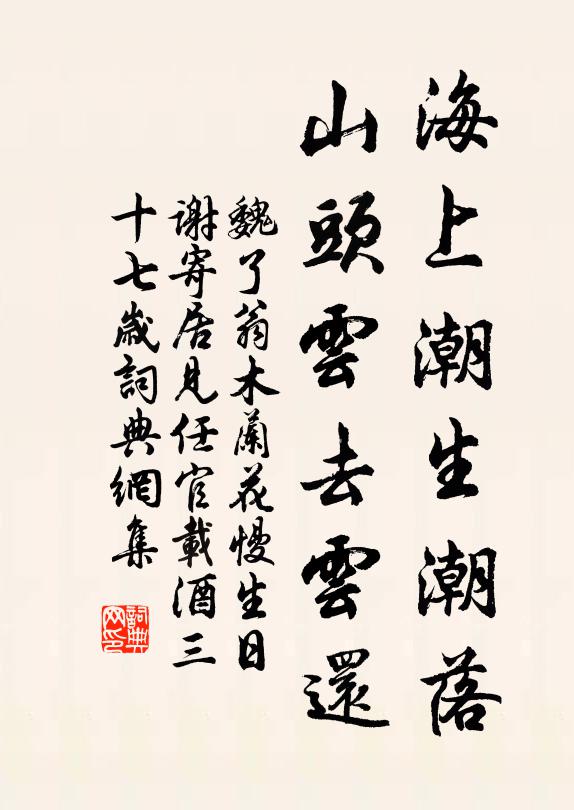 海上潮生潮落
山頭雲去雲還
魏了翁木蘭花慢生日
謝寄居見任官載酒三
十七歲詞典網集
詞典网印